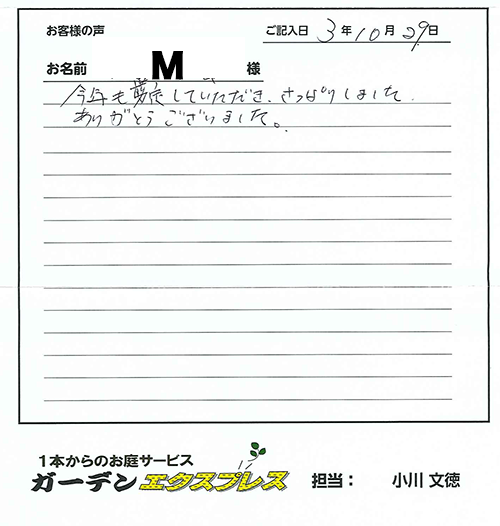 お客様の声
ご記入日 3年10月29日
お名前 M 様
今年も剪定していただき、さっぱりしました
ありがとうございました。
1本からのお庭サービス
ガーデンエクスプレス 担当： 小川 文徳